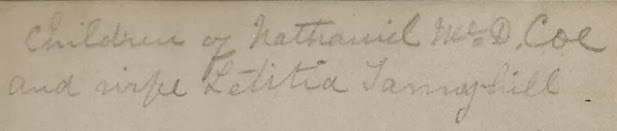 Children of Nathaniel McD. Coe
and wife Letitia Tannyhill.